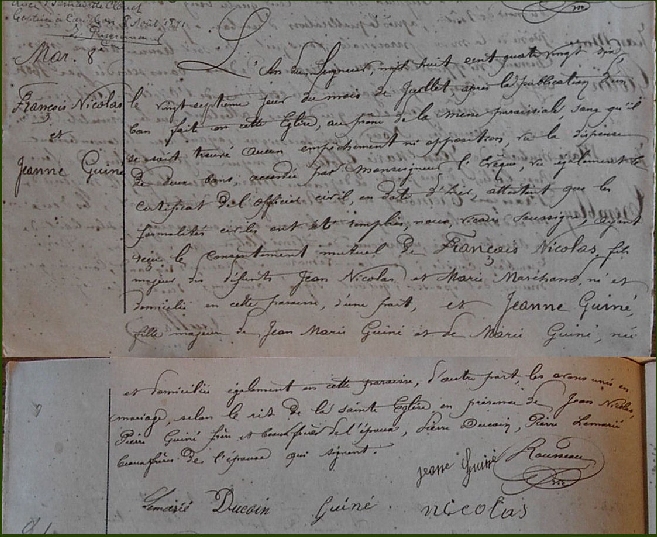 Mar. 8e
François Nicolas
et
Jeanne Guiné
L'An du Seigneur, mil huit cent quatre vingt dix,
le vingt septième jour du mois de Juillet après la publication d'un
ban fait en cette Eglise, au prône de la messe paroissiale, sans qu'il
se soit trouvé aucun empêchement ni opposition, vu la dispense
de deux bans, accordée par Monseigneur l'Evêque, vu également le
certificat de l'officier civil, en date d'hier, attestant que les
formalités civiles ont été remplies, nous, vicaire soussigné, ayant
reçu le consentement mutuel de François Nicolas, fils
majeur des défunts Jean Nicolas et Marie Marchand, né et
domicilié en cette paroisse, d'une part, et Jeanne Guiné,
fille majeure de Jean Marie Guiné et de Marie Guiné, née
et domiciliée également en cette paroisse, d'autre part, les avons unis en
mariage, selon le rit de la sainte Eglise, en présence de Jean Nicolas,
Pierre Guiné frère et beaufrère de l'époux, Pierre Ducoin, Pierre Lemarié
beauxfrères de l'épouse qui signent.
jeane Guiné Rousseau
Lemarié Ducoin Guiné nicolas